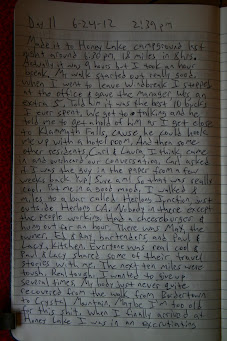 Day 11 6-24-12 2:39pm
Made it to Honey Lake campground last
night around 6:30 pm. 18 miles in 8 hrs.
Actually was 9 hours but I took an hour
break. My walk started out really good.
When I went to leave Windbreak I stopped
at the office & gave the manager lady an
extra 5. Told him it was the best 10 bucks
I ever spent. We got to talking and he
told me to get ahold of him as I get close
to Klamath Falls, cause he could hook
me up with a hotel room. And then some
other residents, Carl & Laura, I think, came
in and overheard our conversation. Carl asked
if I was the guy in the paper from a few
weeks back. Yup! Sure am! So that was really
cool. Put me in a good mood. I walked 8
miles to a bar called Herlong Junction, just
outside Herlong CA. Nobody in there except
the people working. Had a cheeseburger &
hung out for an hour. There was Mat, the
owner, Ed & Ray, bartenders, and Paul &
Lacy, kitchen. Everyone was real cool &
Paul & Lacy shared some of their travel
stories with me. The next ten miles were
tough. Real tough. I wanted to give up
several times. My body just never quite
recovered from the walk from Bordertown
to Crystal Mountain. Maybe I'm too old
for this shit. When I finally arrived at
Honey Lake I was in an excruciating